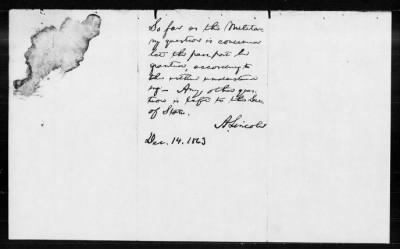 So far as the Militar-
ry question is concerned
let the passport be
granted, according to
the within understand
ing— Any other ques-
tion is left to the Sec.
of State.
A. Lincoln
Dec. 14. 1863